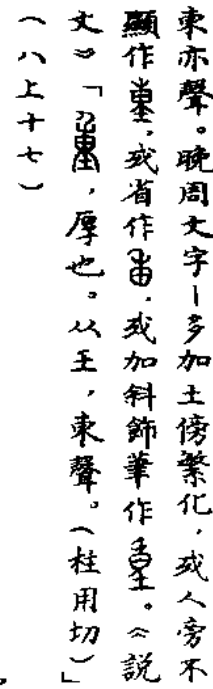 東亦聲。晚周文字—多加土傍繁化，或人旁不
顯作，或省作，或加斜飾筆作。《說
文》「，厚也。从王，東聲。（柱用切）」
（八上十七）